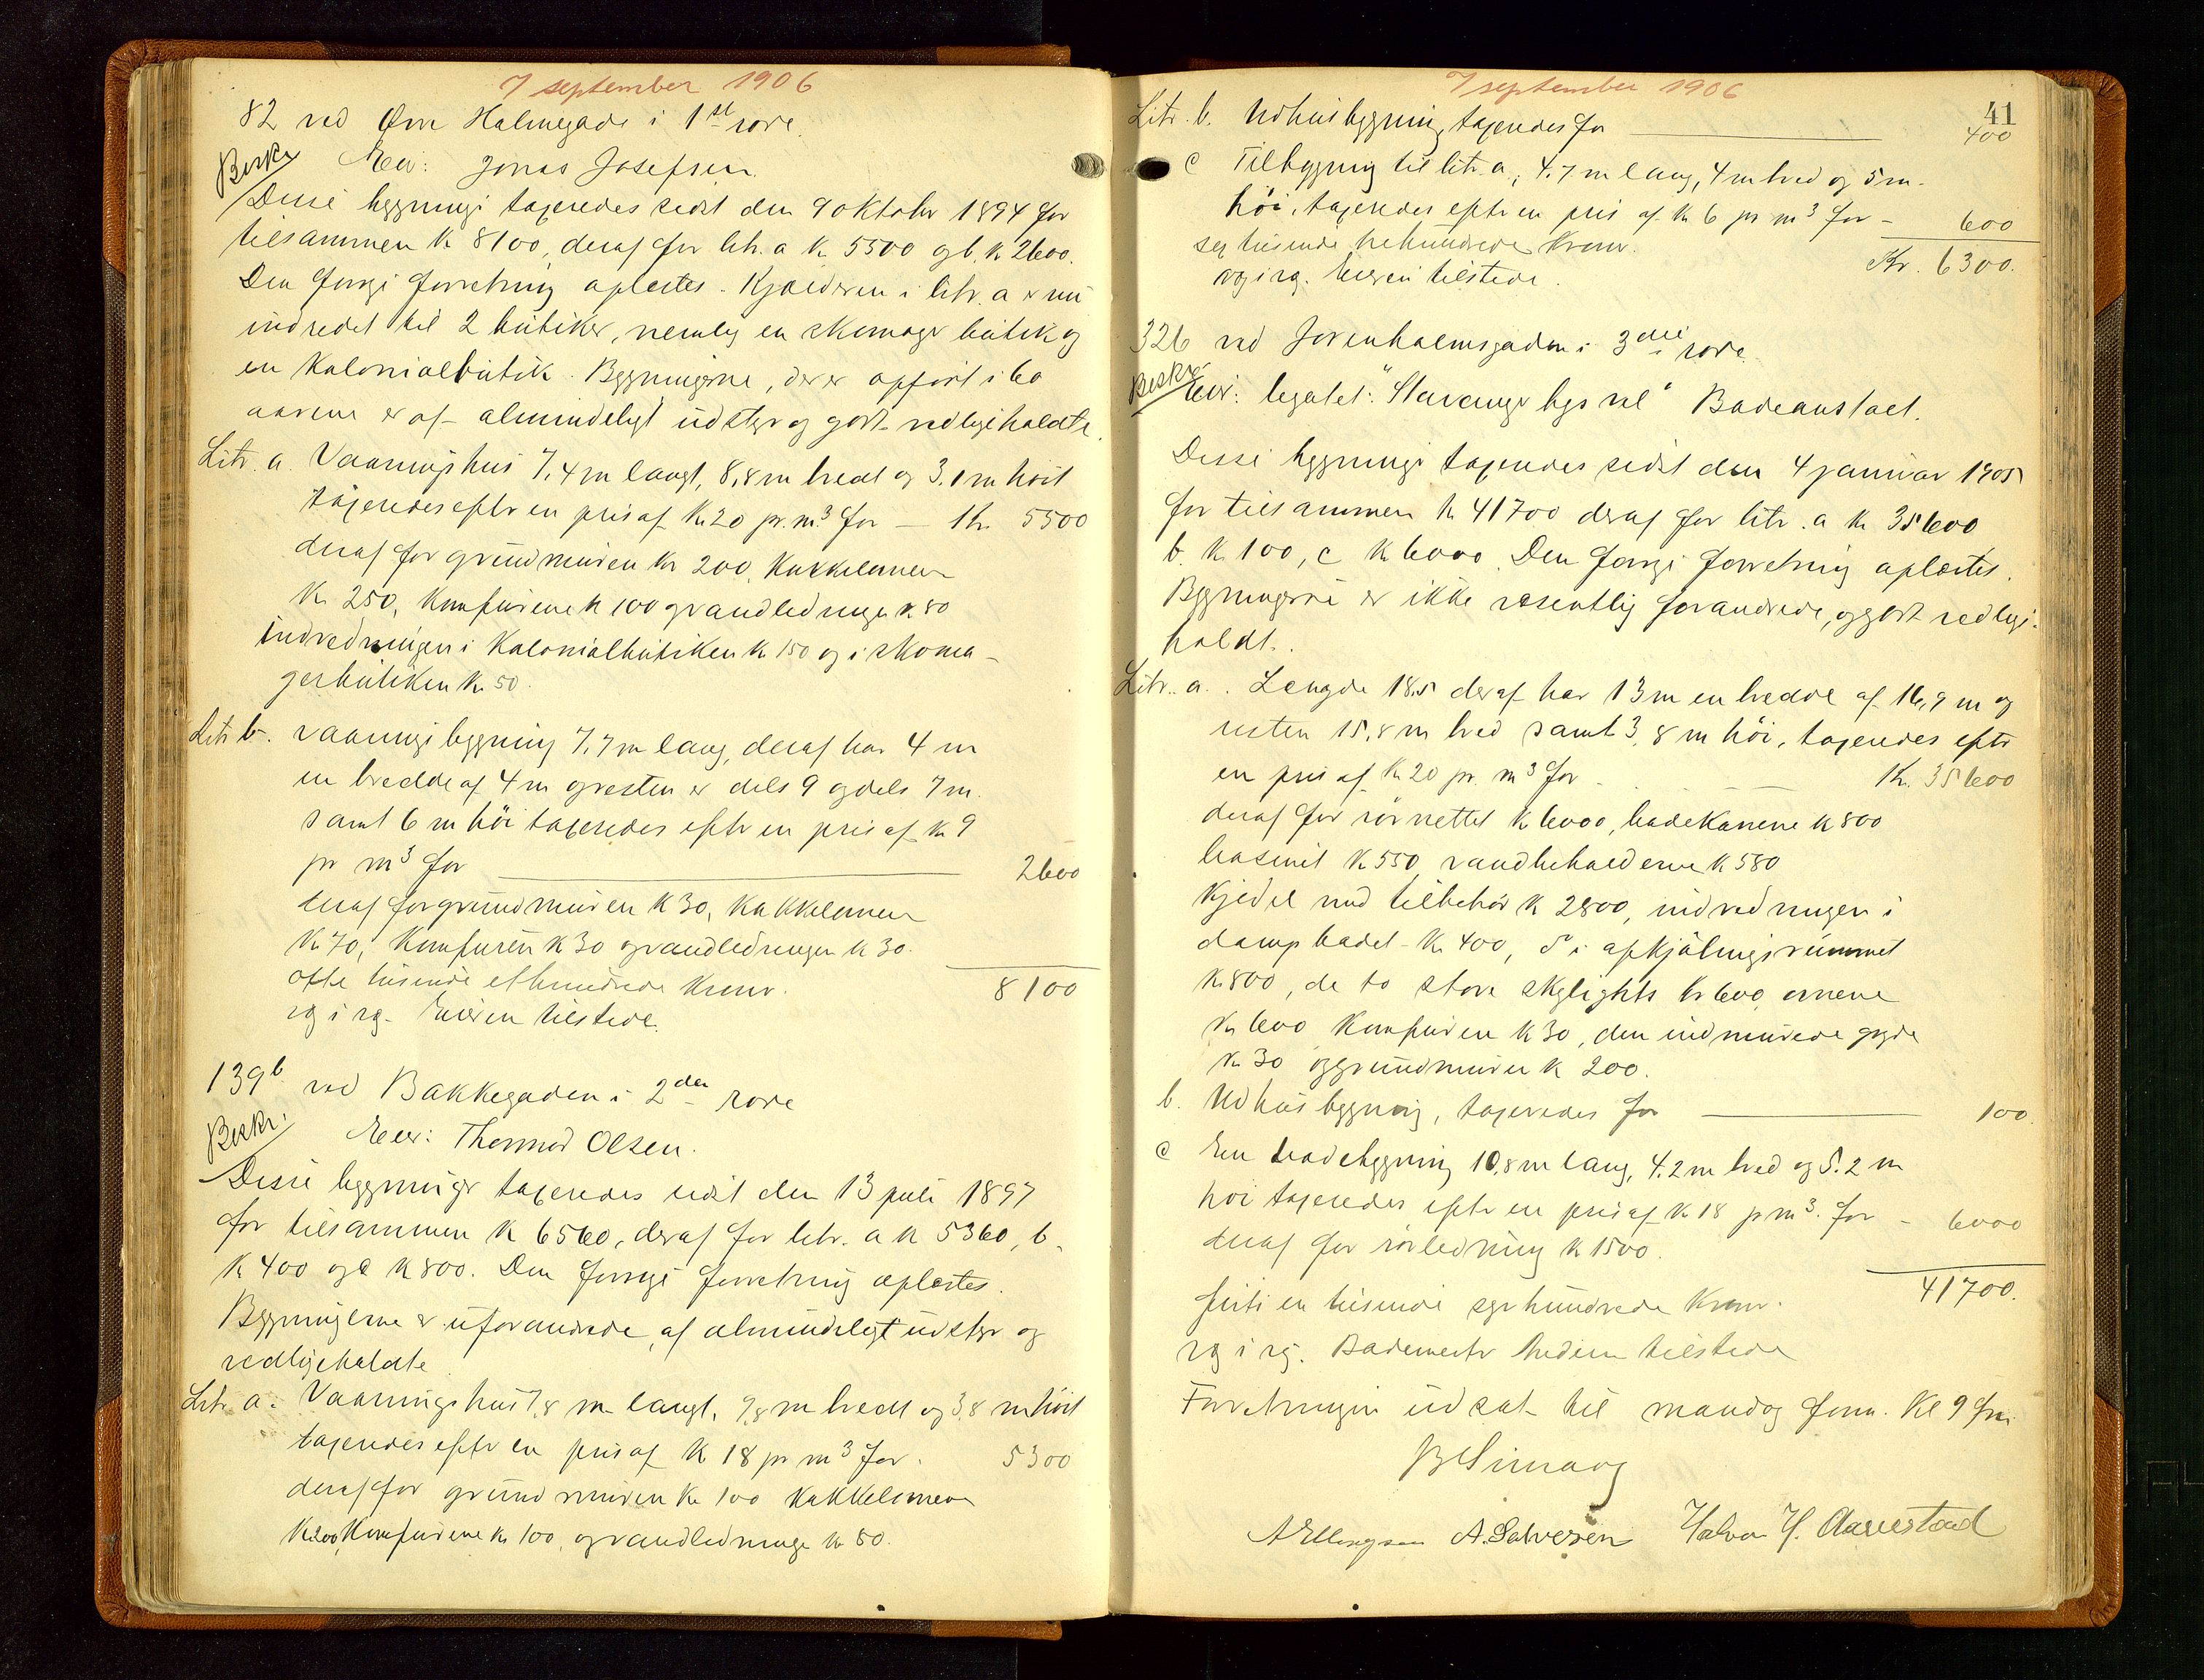 7 september 1906
82 ved Øvre Holmegade i 1ste rode.
Beskr.
Eier: Jonas Josefsen.
Disse bygninger taxeredes sidst den 9 oktober 1894 for
tilsammen kr 8100, deraf for litr. a kr 5500 og b. kr 2600.
Den forrige forretning oplæstes. Kjælderen i litr. a er nu
indredet til 2 butiker, nemlig en skomager butik og
en kolonialbutik. Bygningerne, der er opført i 60
aarene er af almindeligt udstyr og godt vedligeholdte.
Litr. a. Vaaningshus 7,4 m langt, 8,8 m bredt og 3,1 m høit
taxeredes efter en pris af kr 20 pr. m3 for — Kr. 5500
deraf for grundmuren kr 200, kakkelovnen
kr 250, komfurene kr 100 og vandledningen kr 80
indredningen i kolonialbutiken kr 150 og i skoma-
gerbutiken kr 50.
Litr b. vaaningsbygning 7,7 m lang, deraf har 4 m
en bredde af 4 m og resten er dels 9 og dels 7 m.
samt 6 m høi taxeredes efter en pris af kr 9
pr m3 for 2600
deraf for grundmuren kr 30, kakkelovnen
kr 70, komfuren kr 30 og vandledningen kr 30.
otte tusinde et hundrede kroner. 8100
vg i vg. Eieren tilstede.
139b ved Bakkegaden i 2den rode
Beskr.
Eier: Thormod Olsen.
Disse bygninger taxeredes sidst den 13 juli 1897
for tilsammen kr 6560, deraf for litr. a kr 5360, b.
kr 400 og c kr 800. Den forrige forretning oplæstes.
Bygningerne er uforandrede, af almindeligt udstyr og
vedligeholdte
Litr. a. Vaaningshus 7,8 m langt, 9,8 m bredt og 3,8 m høit
taxeredes efter en pris af kr 18 pr m3 for. 5300
deraf for grundmuren kr 100 kakkelovnen
kr 200, komfurene kr 100, og vandledninge kr 50.
7 september 1906
41
Litr. b. Udhusbygning, taxeredes for 400
c Tilbygning til litr. a, 4.7 m lang, 4 m bred og 5 m.
høi, taxeredes efter en pris af kr 6 pr m3 for — 600
sex tusinde trehundrede kroner. Kr. 6300.
vg i vg. Eieren tilstede.
326 ved Jorenholmsgaden i 3die rode.
Beskr.
Eier: legatet: "Stavanger bys vel" Badeanstalt.
Disse bygninger taxeredes sidst den 4 januar 1905
for tilsammen kr 41700 deraf for litr. a kr 35600
b. kr 100, c kr 6000. Den forrige forretning oplæstes.
Bygningerne er ikke væsentlig forandrede, og godt vedlige-
holdt.
Litr. a. Længde 18,5 deraf har 13 m en bredde af 16,9 m og
resten 15,8 m bred samt 3,8 m høi, taxeredes efter
en pris af kr 20 pr. m3 for Kr. 35600
deraf for rørnettet kr 6000, badekarrene kr 800
basinet kr 550, vandbeholderne kr 580
kjedel med tilbehør kr 2800, indredningen i
dampbadet kr 400, do i afkjølingsrummet
kr 800, de to store skylights kr 600 ovnene
kr 600 komfuren kr 30, den indmurede gryde
kr 30 og grundmuren kr 200.
b. Udhusbygning, taxeredes for 100.
c En badebygning 10,8 m lang, 4.2 m bred og 5.2 m
høi taxeredes efter en pris af kr 18 pr m3. for — 6000
deraf for rørledning kr 1500.
firti en tusinde syvhundrede kroner. 41700.
vg i vg. Bademester tilstede
Forretningen udsat til mandag form. Kl 9 fm.
A Ellingsen A. Salvesen Halvor H. Aarrestad